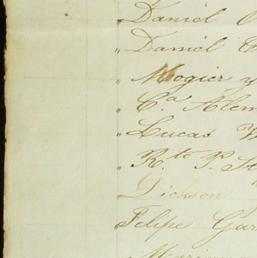 Daniel
„ Daniel
„ Mogier y
„ C.ª Alem
„ Lucas W
„ R.to P.
Dickson
Felipe Gar